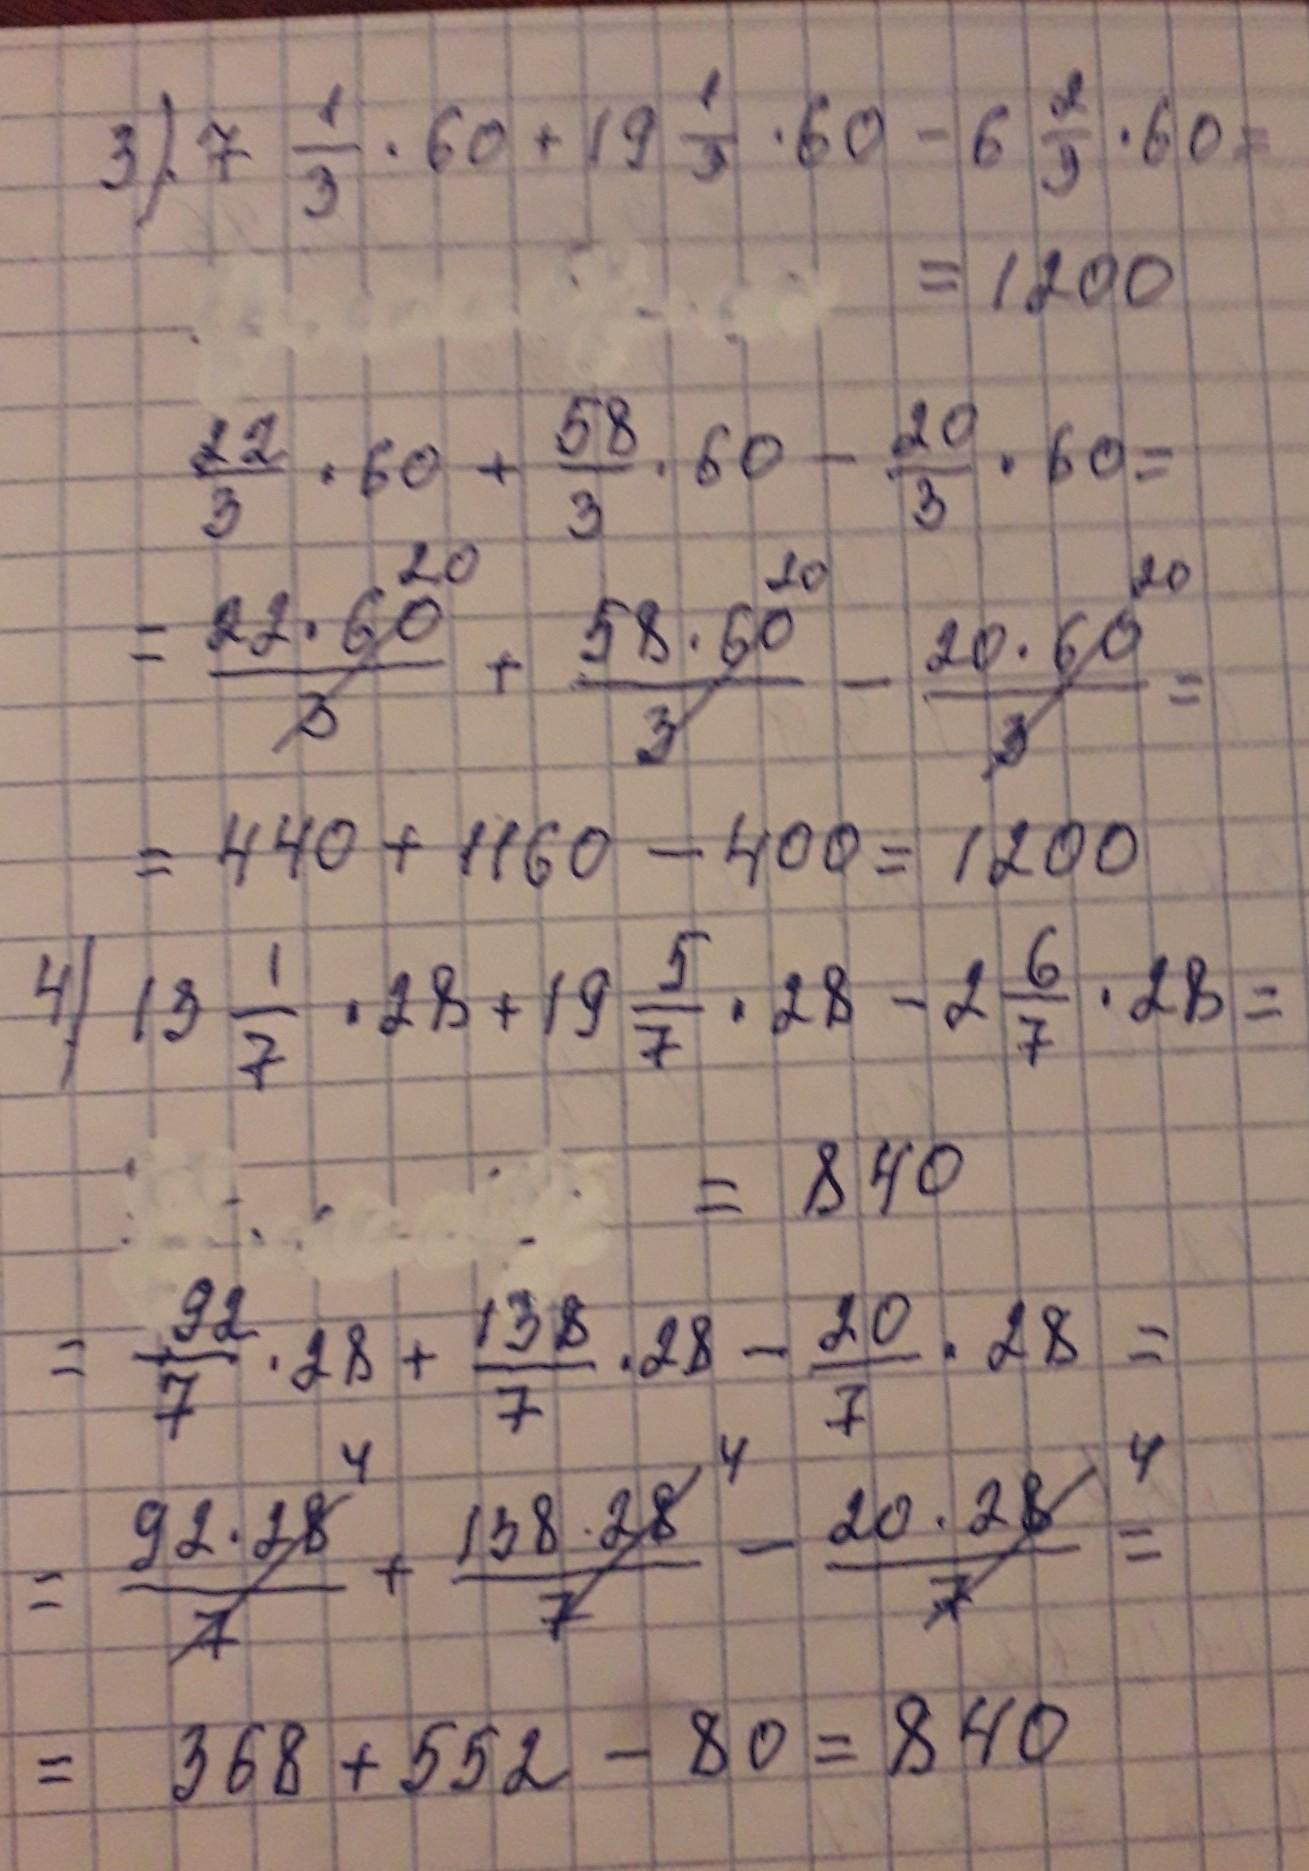 3). 7 1/3 · 60 + 19 1/3 · 60 - 6 2/3 · 60 =
= 1200
22/3 · 60 + 58/3 · 60 - 20/3 · 60 =
= 22 · 60 20 / 3 + 58 · 60 20 / 3 - 20 · 60 20 / 3 =
= 440 + 1160 - 400 = 1200
4) 13 1/7 · 28 + 19 5/7 · 28 - 2 6/7 · 28 =
= 840
= 92/7 · 28 + 138/7 · 28 - 20/7 · 28 =
= 92 · 28 4 / 7 + 138 · 28 4 / 7 - 20 · 28 4 / 7 =
= 368 + 552 - 80 = 840